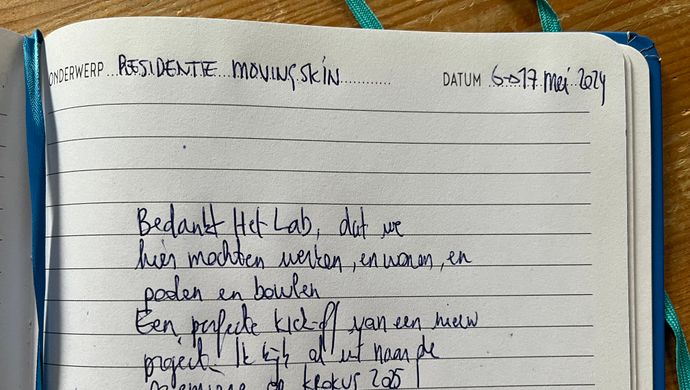 ONDERWERP RESIDENTIE MOVINGSKIN DATUM 6→17 mei 2024
Bedankt Het Lab, dat we
hier mochten werken, en wonen, en
en bowlen
Een perfecte kick-off van een nieuw
project. Ik kijk al uit naar de
op krokus 2025